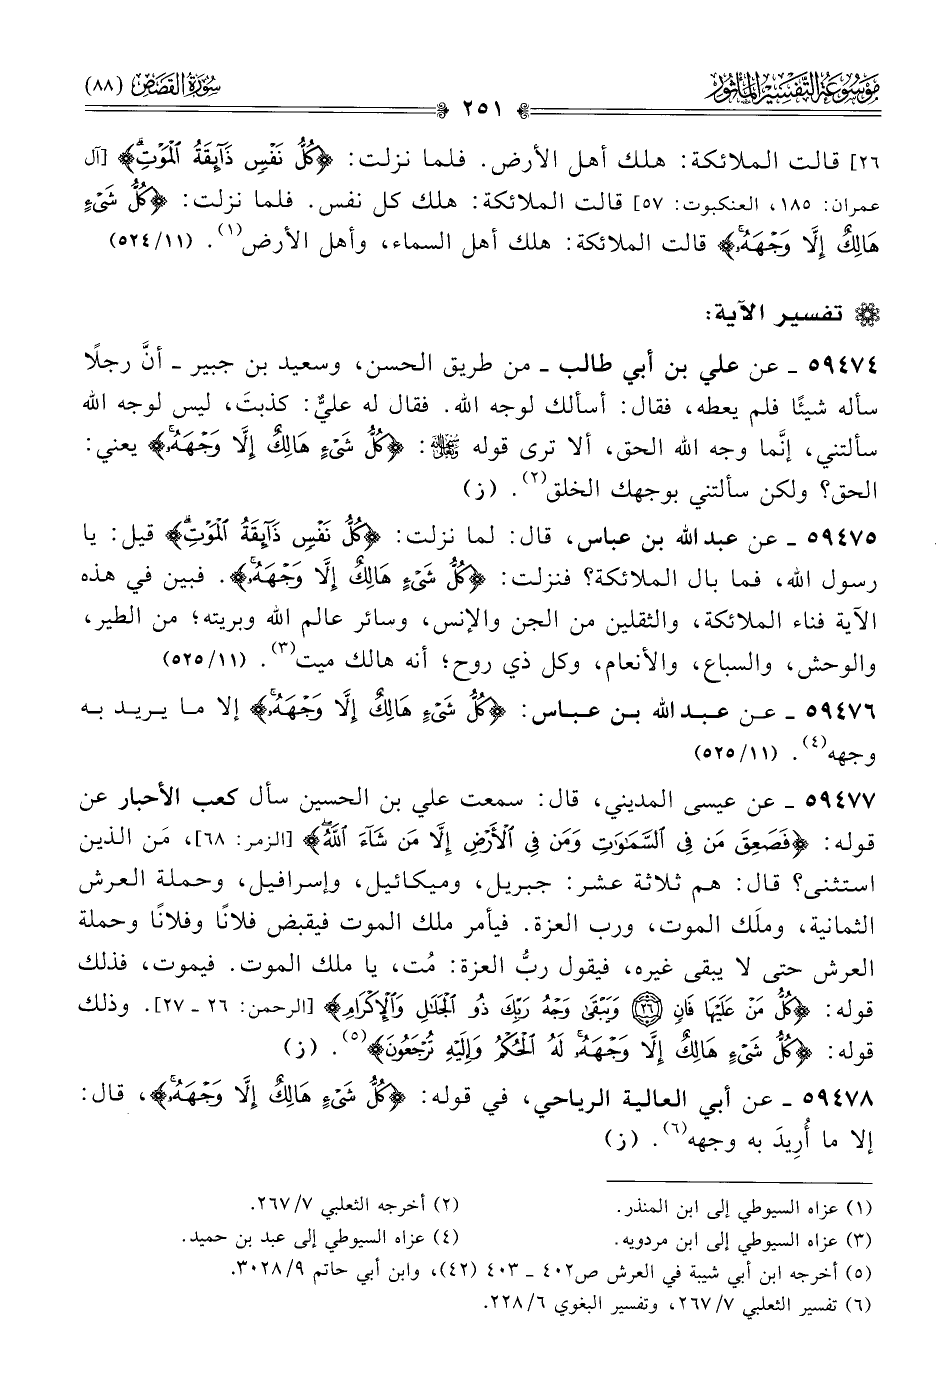 موسوعة التفسير المأثور
سورة القصص (٨٨)
٢٥١
٢٦] قالت الملائكة: هلك أهل الأرض. فلما نزلت: ﴿كُلُّ نَفْسٍ ذَآئِقَةُ ٱلْمَوْتِ﴾ [آل
عمران: ١٨٥، العنكبوت: ٥٧] قالت الملائكة: هلك كل نفس. فلما نزلت: ﴿كُلُّ شَىْءٍ
هَالِكٌ إِلَّا وَجْهَهُۥ﴾ قالت الملائكة: هلك أهل السماء، وأهل الأرض(١). (٥٢٤/١١)
تفسير الآية:
٥٩٤٧٤ ـ عن علي بن أبي طالب ـ من طريق الحسن، وسعيد بن جبير ـ أنَّ رجلًا
سأله شيئًا فلم يعطه، فقال: أسألك لوجه الله. فقال له عليٌّ: كذبتَ، ليس لوجه الله
سألتني، إنَّما وجه الله الحق، ألا ترى قوله ﷻ: ﴿كُلُّ شَىْءٍ هَالِكٌ إِلَّا وَجْهَهُۥ﴾ يعني:
الحق؟ ولكن سألتني بوجهك الخلق(٢). (ز)
٥٩٤٧٥ ـ عن عبد الله بن عباس، قال: لما نزلت: ﴿كُلُّ نَفْسٍ ذَآئِقَةُ ٱلْمَوْتِ﴾ قيل: يا
رسول الله، فما بال الملائكة؟ فنزلت: ﴿كُلُّ شَىْءٍ هَالِكٌ إِلَّا وَجْهَهُۥ﴾. فبين في هذه
الآية فناء الملائكة، والثقلين من الجن والإنس، وسائر عالم الله وبريته؛ من الطير،
والوحش، والسباع، والأنعام، وكل ذي روح؛ أنه هالك ميت(٣). (٥٢٥/١١)
٥٩٤٧٦ ـ عن عبد الله بن عباس: ﴿كُلُّ شَىْءٍ هَالِكٌ إِلَّا وَجْهَهُۥ﴾ إلا ما يريد به
وجهه(٤). (٥٢٥/١١)
٥٩٤٧٧ ـ عن عيسى المديني، قال: سمعت علي بن الحسين سأل كعب الأحبار عن
قوله: ﴿فَصَعِقَ مَن فِى ٱلسَّمَٰوَٰتِ وَمَن فِى ٱلْأَرْضِ إِلَّا مَن شَآءَ ٱللَّهُ﴾ [الزمر: ٦٨]، مَن الذين
استثنى؟ قال: هم ثلاثة عشر: جبريل، وميكائيل، وإسرافيل، وحملة العرش
الثمانية، وملَك الموت، ورب العزة. فيأمر ملك الموت فيقبض فلانًا وفلانًا وحملة
العرش حتى لا يبقى غيره، فيقول ربُّ العزة: مُت، يا ملك الموت. فيموت، فذلك
قوله: ﴿كُلُّ مَنْ عَلَيْهَا فَانٍ (٢٦) وَيَبْقَىٰ وَجْهُ رَبِّكَ ذُو ٱلْجَلَٰلِ وَٱلْإِكْرَامِ﴾ [الرحمن: ٢٦ ـ ٢٧]. وذلك
قوله: ﴿كُلُّ شَىْءٍ هَالِكٌ إِلَّا وَجْهَهُۥ لَهُ ٱلْحُكْمُ وَإِلَيْهِ تُرْجَعُونَ﴾(٥). (ز)
٥٩٤٧٨ ـ عن أبي العالية الرياحي، في قوله: ﴿كُلُّ شَىْءٍ هَالِكٌ إِلَّا وَجْهَهُۥ﴾، قال:
إلا ما أُرِيدَ به وجهه(٦). (ز)
(١) عزاه السيوطي إلى ابن المنذر.
(٢) أخرجه الثعلبي ٢٦٧/٧.
(٣) عزاه السيوطي إلى ابن مردويه.
(٤) عزاه السيوطي إلى عبد بن حميد.
(٥) أخرجه ابن أبي شيبة في العرش ص٤٠٢ ـ ٤٠٣ (٤٢)، وابن أبي حاتم ٣٠٢٨/٩.
(٦) تفسير الثعلبي ٢٦٧/٧، وتفسير البغوي ٢٢٨/٦.